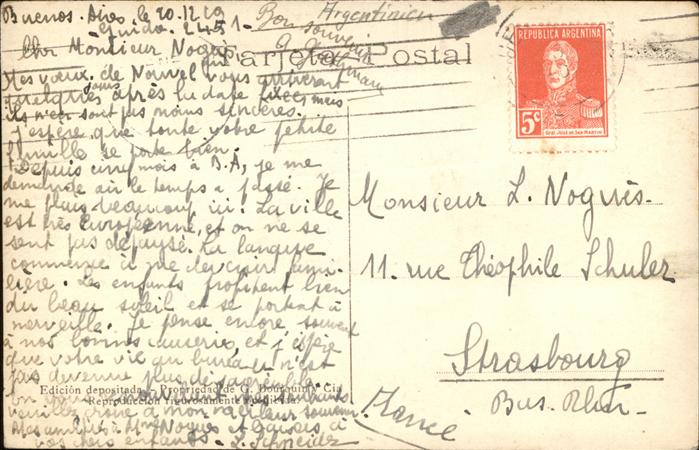 Buenos Aires le 20.12.29
Guido 2451 -
Cher Monsieur Noguès
Bon souvenir
Argentinien
Tarjeta Postal
REPUBLICA ARGENTINA
5c
GRAL JOSE DE SAN MARTIN
Mes vœux de Nouvel vous arriveront
quelques jours après la date fixée mais
ils n'en sont pas moins sincères.
J'espère que toute votre petite
famille se porte bien.
Depuis cinq mois à B.A, je me
demande où le temps a passé. Je
me plais beaucoup ici. La ville
est très Européenne, et on ne se
sent pas dépaysé. La langue
commence à me devenir fami-
lière. Les enfants profitent bien
du beau soleil et se portent à
merveille. Je pense encore souvent
à nos bonnes causeries, et j'espère
que votre vie au bureau n'est
pas devenue plus désagréable.
Edición depositada - Propiedad de G. Bourquin y Cia
Reproducción rigurosamente prohibida
veuillez croire à mon meilleur souvenir
Mes amitiés à Mme Noguès et baisers à
vos chers enfants - L. Schneider
Monsieur L. Noguès
11. rue Théophile Schuler
Strasbourg
Bas. Rhin -
France